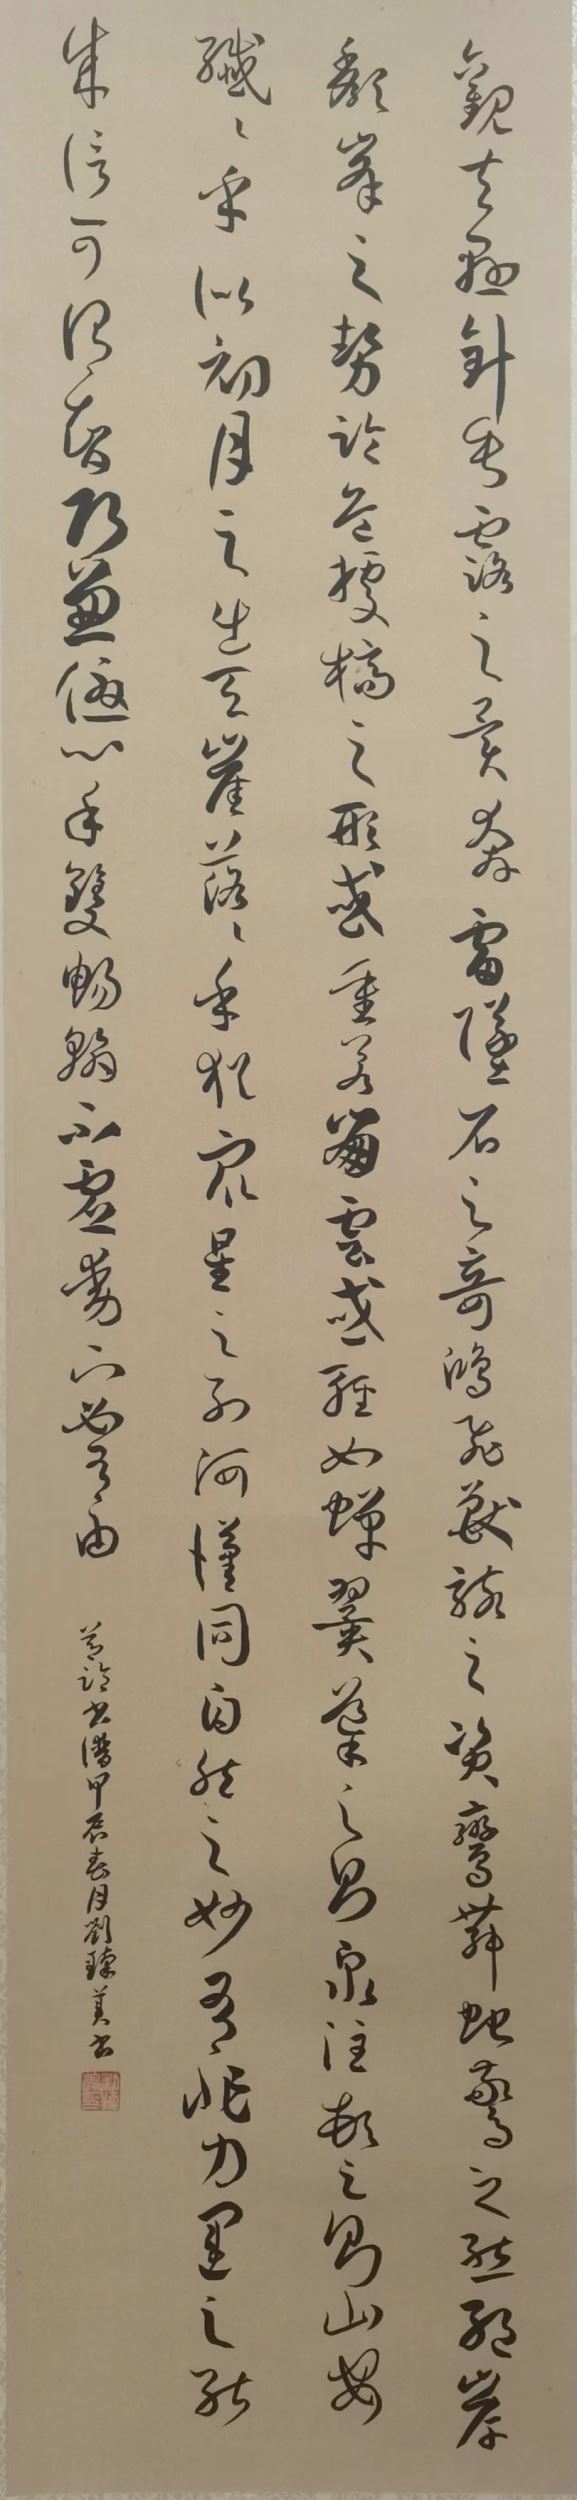 觀夫懸針垂露之異奔雷墜石之奇鴻飛獸駭之資鸞舞蛇驚之態絕岸
頹峯之勢臨危據槁之形或重若崩雲或輕如蟬翼導之則泉注頓之則山安
纖纖乎似初月之出天崖落落乎猶眾星之列河漢同自然之妙有非力運之能
成信可謂智巧兼優心手雙暢翰不虛動下必有由
書譜甲辰春月劉 美書